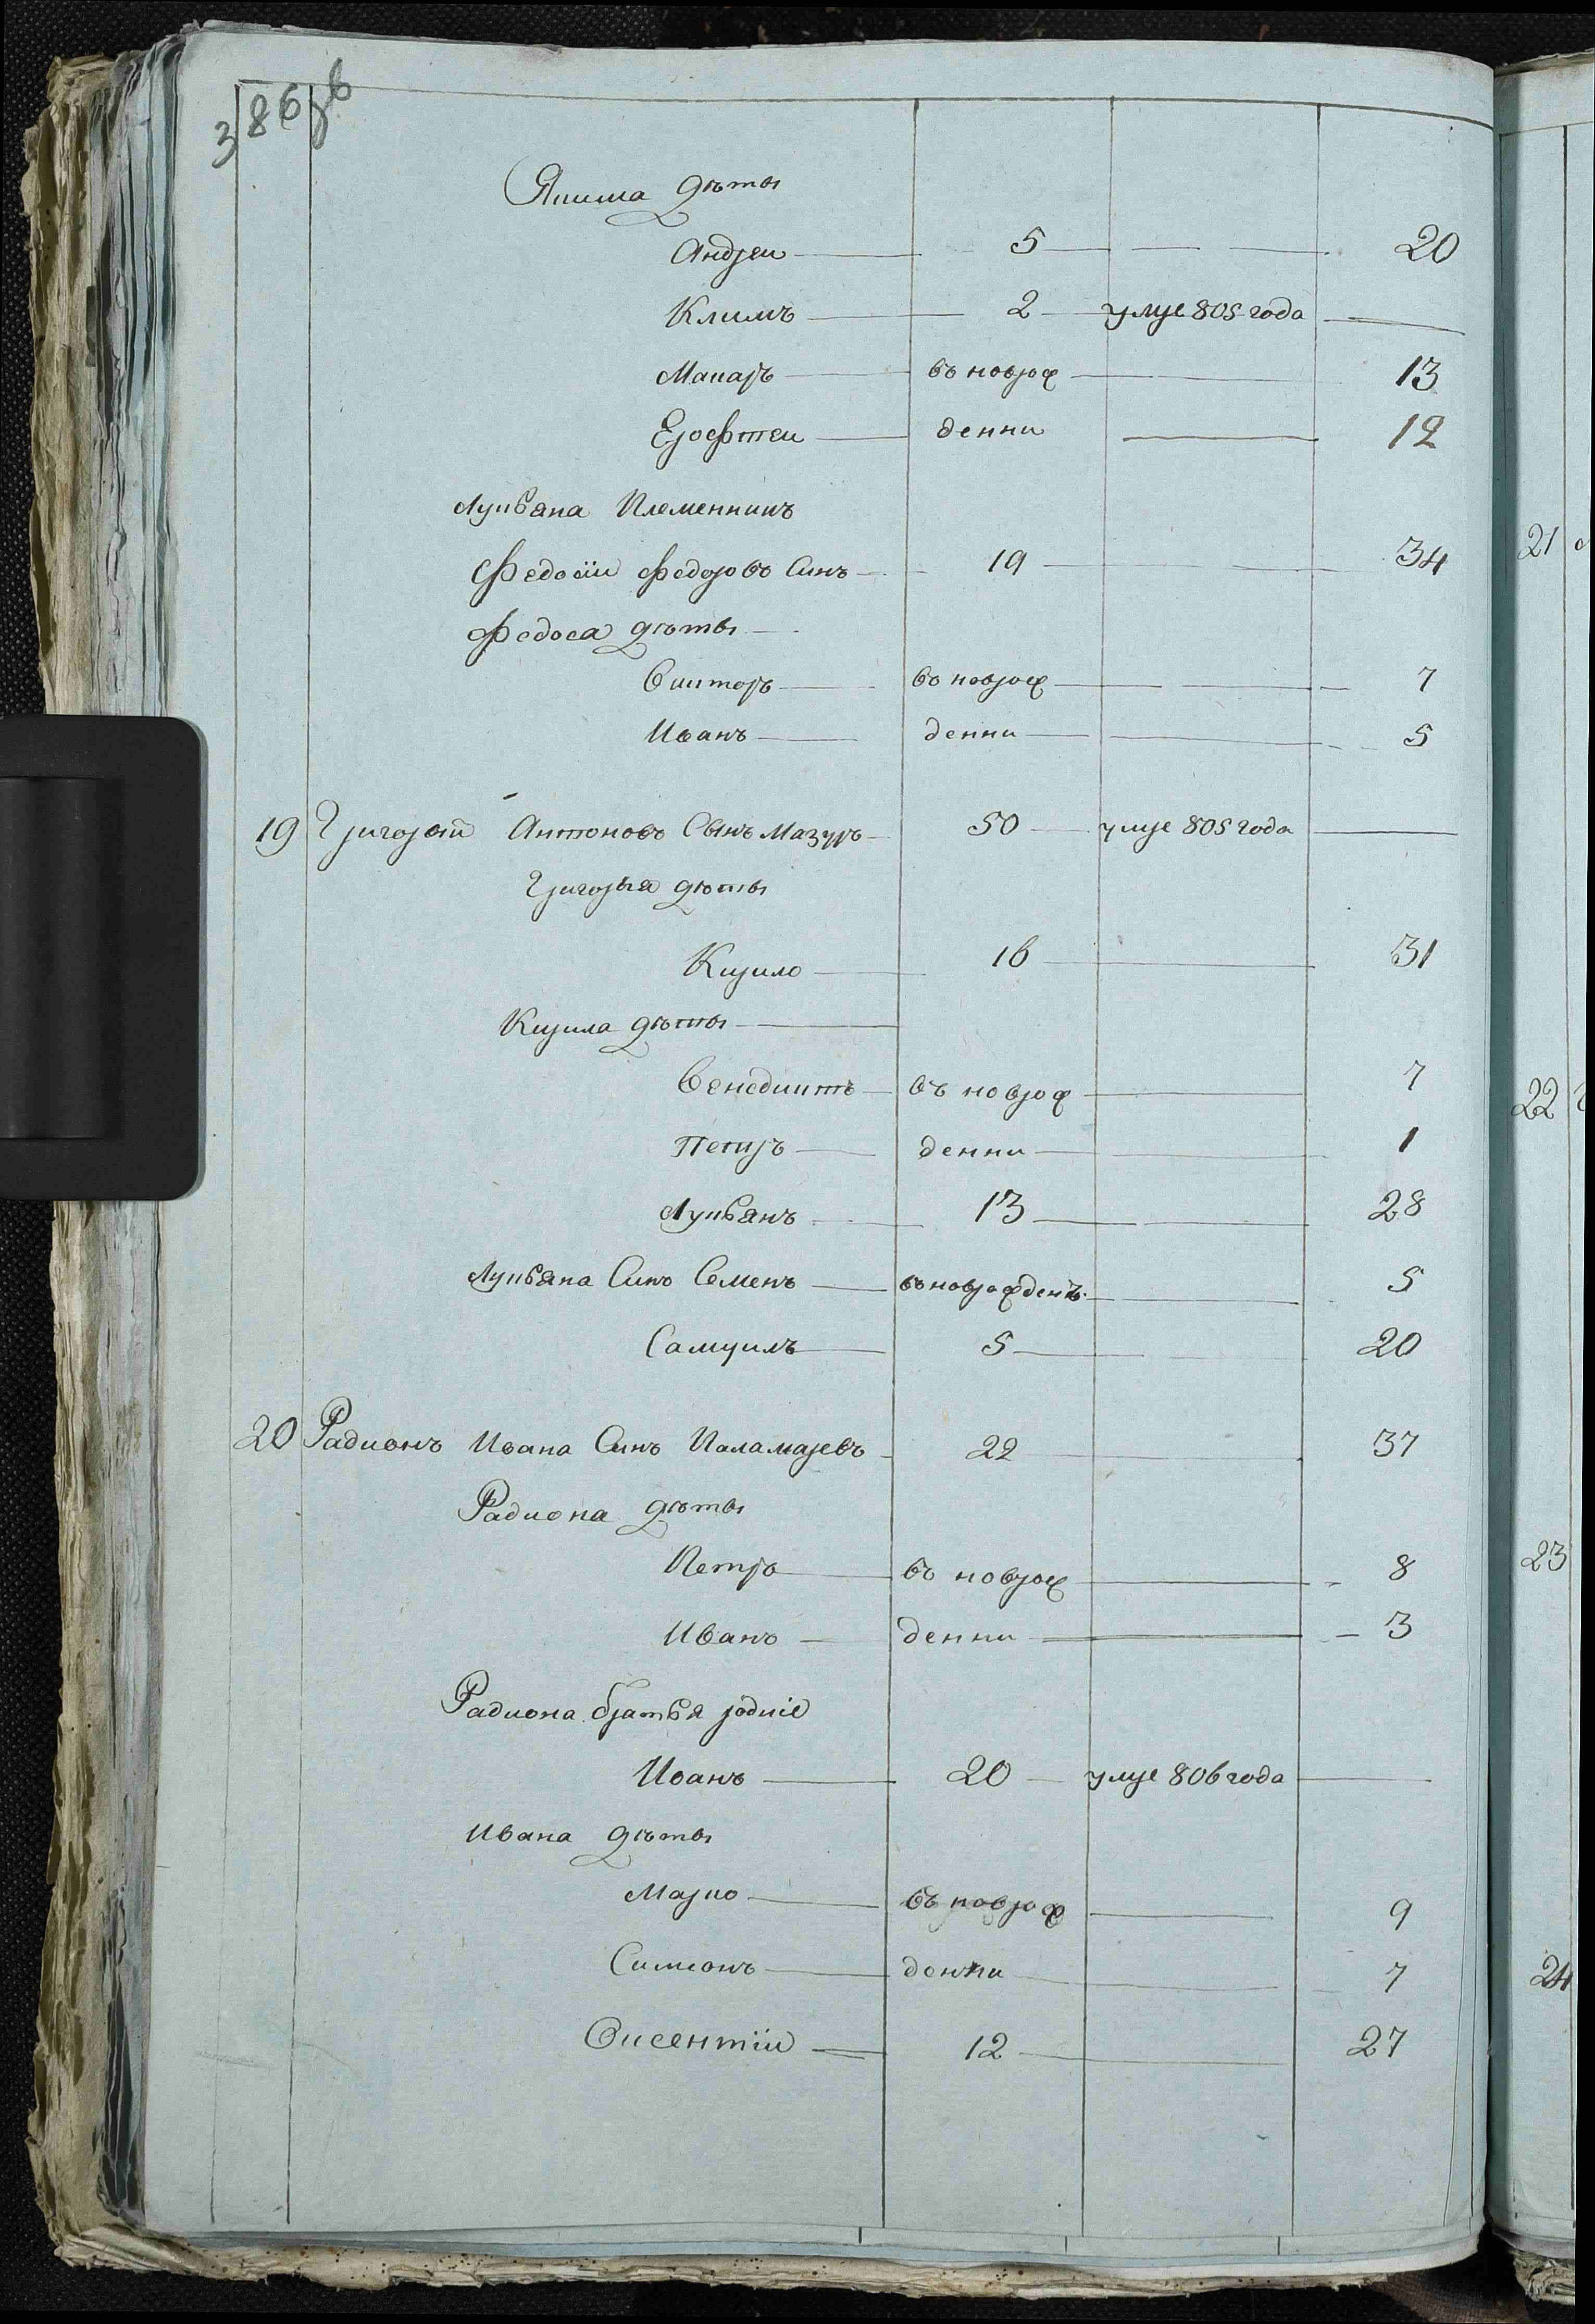 386 зв
Якима дѣты
Андреи 5 20
Климъ 2 умре 805 года
Макаръ въ новрож 13
Ерофтеи денни 12
Лукьяна Племенникъ
Федосiи Федоровъ Синъ 19 34
Федоса дѣты
Викторъ въ новрож 7
Иванъ денни 5
19 Григорiй Антоновъ Сынъ Мазуръ 50 умре 805 года
Григорья дѣты
Кирило 16 31
Кирила дѣты
Венедиктъ въ новрож 7
Петръ денни 1
Лукьянъ 13 28
Лукьяна Синъ Семенъ въ новрожденъ 5
Самуилъ 5 20
20 Радионъ Ивана Синъ Паламаревъ 22 37
Радиона дѣты
Петръ въ новрож 8
Иванъ денни 3
Радиона братья роднiе
Иванъ 20 умре 806 года
Ивана дѣты
Марко въ новрож 9
Симионъ денни 7
Оксентiи 12 27
21
22
23
24